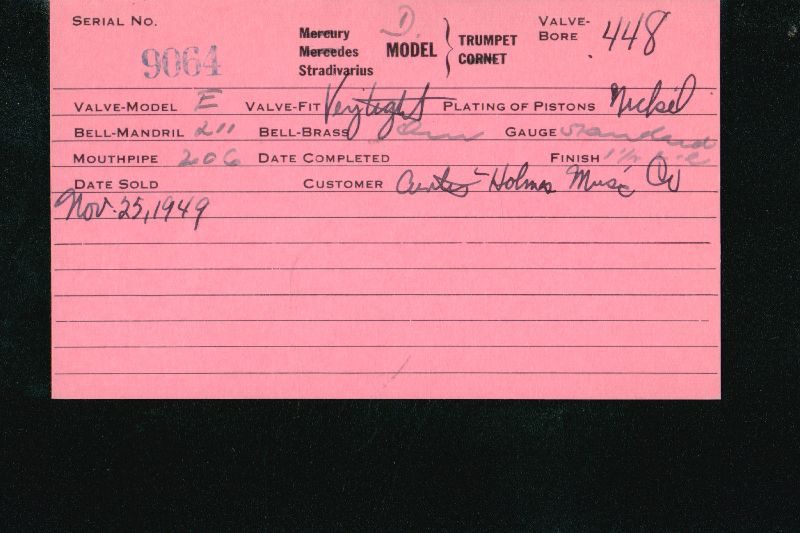 SERIAL NO. 9064 Mercury Mercedes Stradivarius D. MODEL TRUMPET CORNET VALVE-BORE .448
VALVE-MODEL E VALVE-FIT Very tight PLATING OF PISTONS Nickel
BELL-MANDRIL 211 BELL-BRASS GAUGE Standard
MOUTHPIPE 206 DATE COMPLETED FINISH
DATE SOLD CUSTOMER Curtis-Holmes Music Co
Nov. 25, 1949